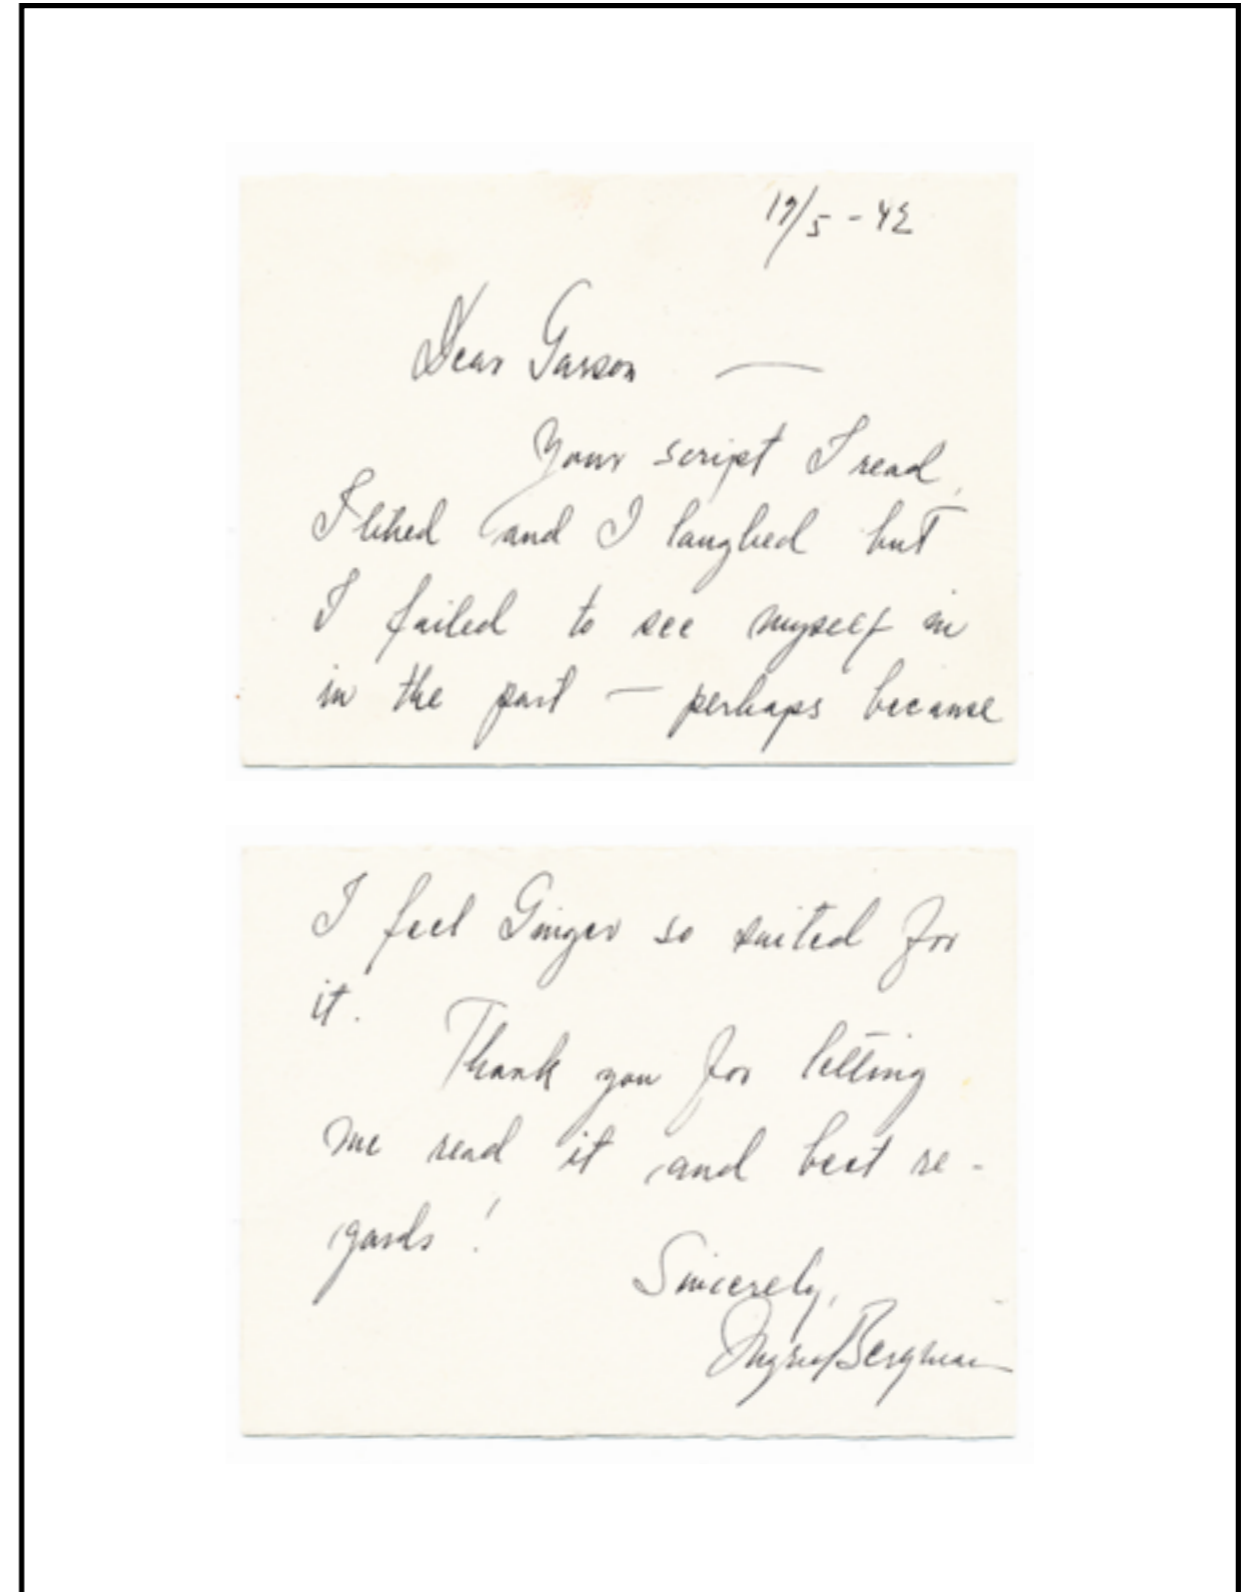 17/5 - 42
Dear Garson —
Your script I read,
I liked and I laughed but
I failed to see myself in
in the part — perhaps because
I feel Ginger so suited for
it.
Thank you for letting
me read it and best re-
gards!
Sincerely,
Ingrid Bergman